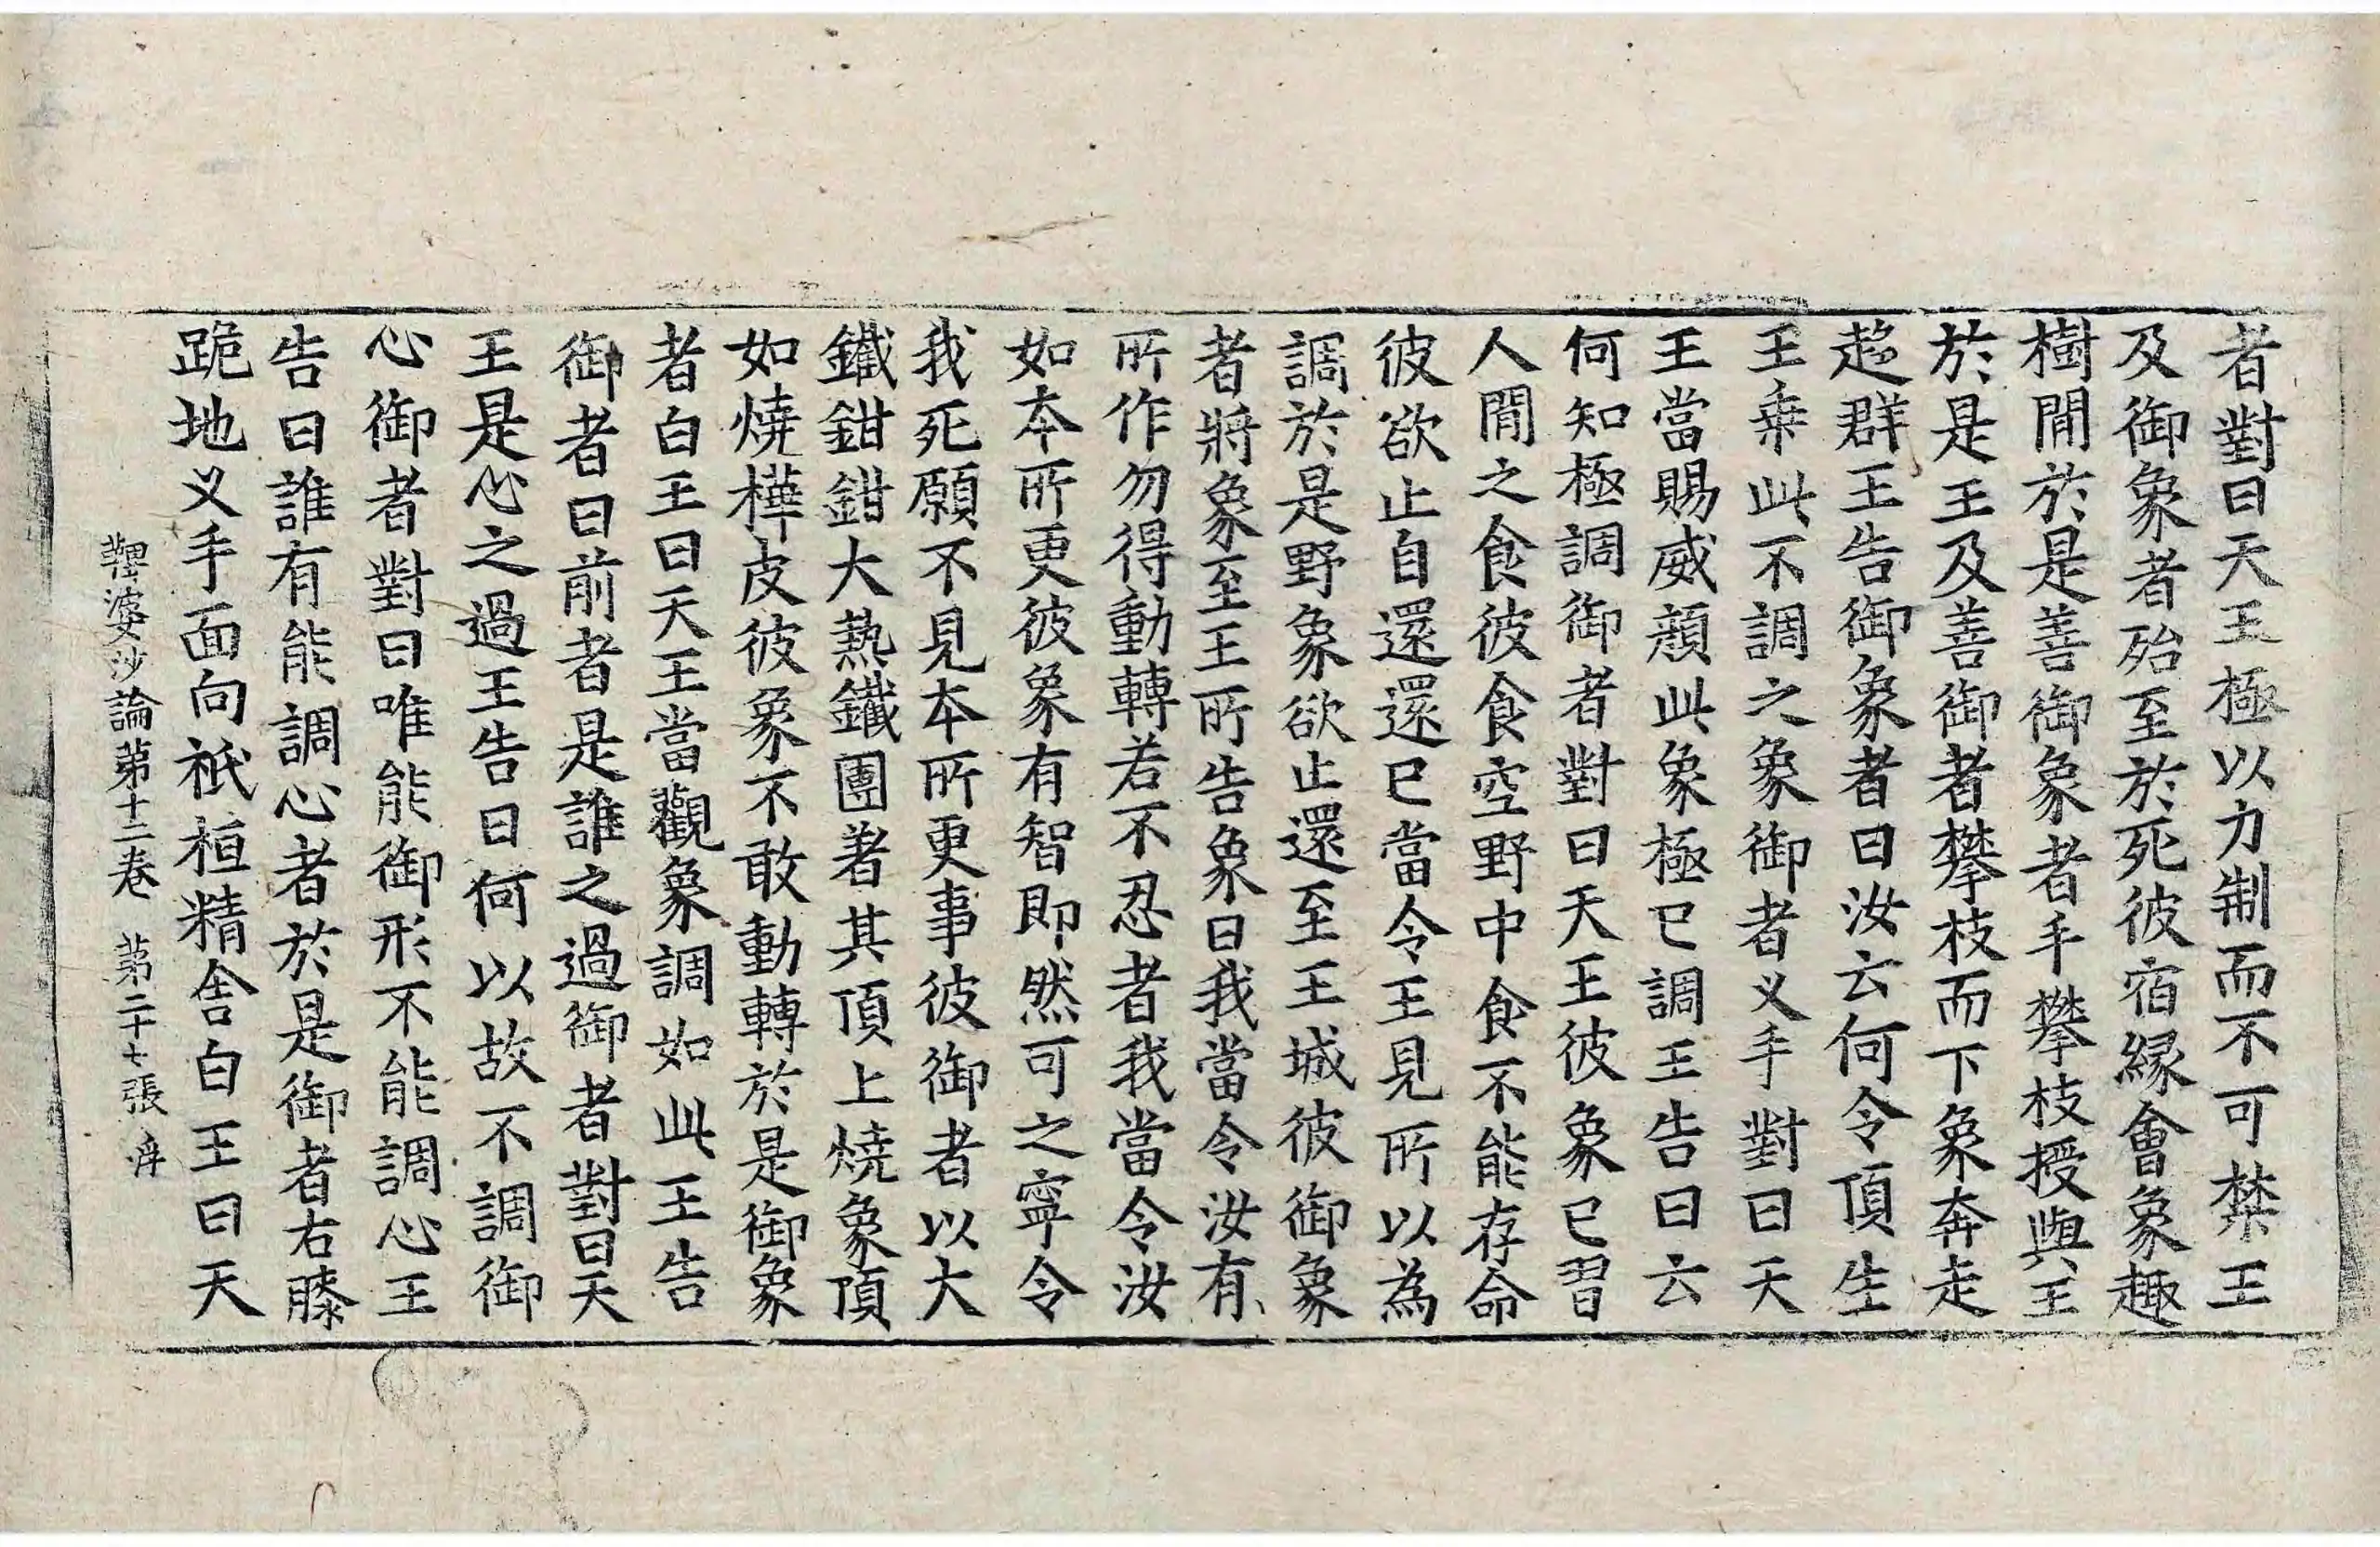 者對曰天王極以力制而不可禁王
及御象者殆至於死彼宿緣會象趣
樹間於是善御象者手攀枝授與王
於是王及善御者攀枝而下象奔走
趍群王告御象者曰汝云何令頂生
王乗此不調之象御者义手對曰天
王當賜威顔此象極已調王告曰云
何知極調御者對曰天王彼象已習
人間之食彼食空野中食不能存命
彼欲止自還還已當令王見所以為
調於是野象欲止還至王城彼御象
者將象至王所告象曰我當令汝有
所作勿得動轉若不忍者我當令汝
如本所更彼象有智即然可之寧令
我死願不見本所更事彼御者以大
鐵鉗鉗大熱鐵團著其頂上燒象頂
如燒樺皮彼象不敢動轉於是御象
者白王曰天王當觀象調如此王告
御者曰前者是誰之過御者對曰天
王是心之過王告曰何以故不調御
心御者對曰唯能御形不能調心王
告曰誰有能調心者於是御者右膝
跪地义手面向祇桓精舍白王曰天
鞞婆沙論第十二卷 第二十七張 𢍉